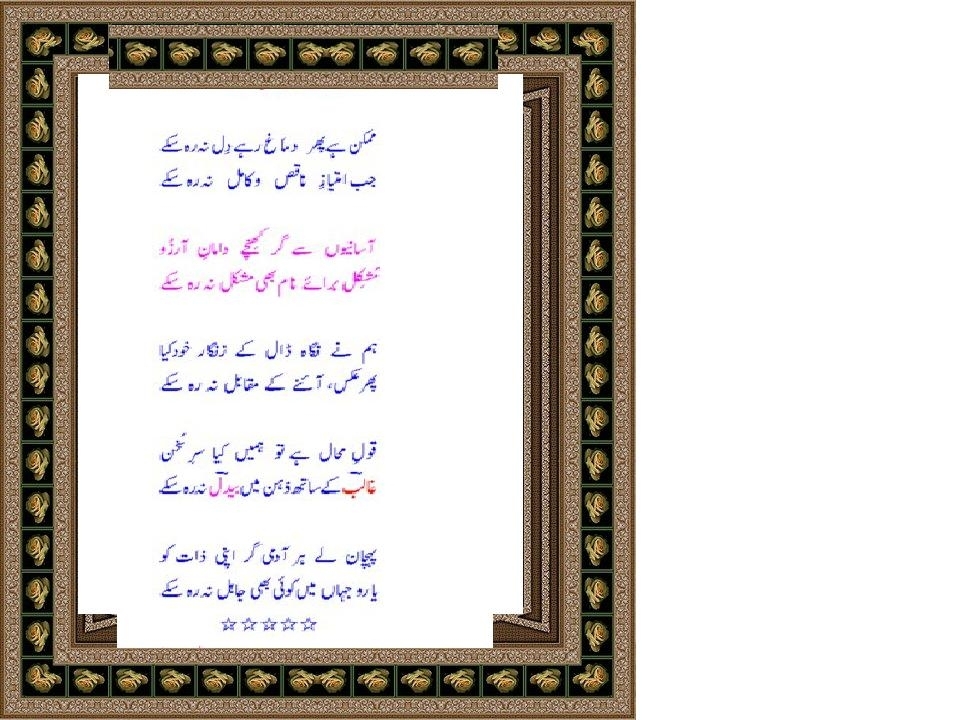 ممکن ہے پھر دماغ رہے دِل نہ رہ سکے
جب امتیازِ ناقص و کامل نہ رہ سکے
آسانیوں سے گر کھنچے دامانِ آرزُو
مُشکِل برائے نام بھی مشکل نہ رہ سکے
ہم نے نگاہ ڈال کے نگار خود کیا
پھر عکس، آئنے کے مقابل نہ رہ سکے
قولِ محال ہے تو ہمیں کیا سرِ سُخن
غالبؔ کے ساتھ ذہن میں بیدلؔ نہ رہ سکے
پہچان لے ہر آدمی گر اپنی ذات کو
یارو جہاں میں کوئی بھی جاہل نہ رہ سکے
☆☆☆☆☆